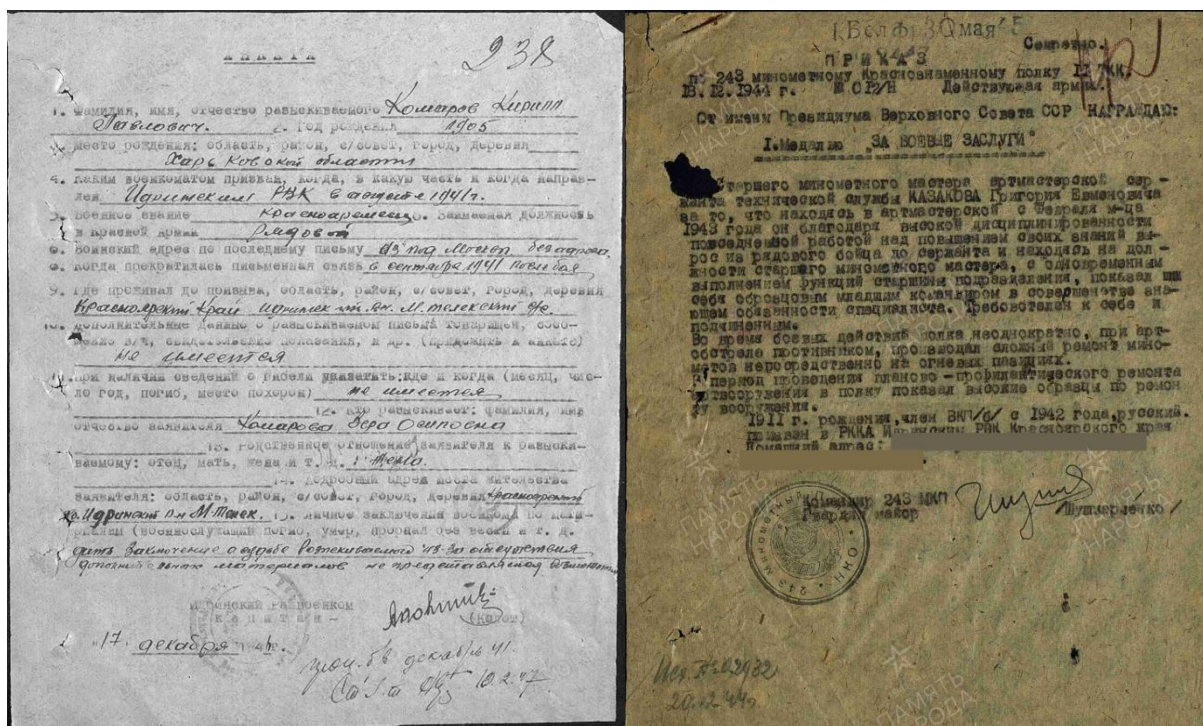 АНКЕТА
238
1. Фамилия, имя, отчество разыскиваемого Комаров Кирилл
Павлович. 2. Год рождения 1905
место рождения: область, район, с/совет, город, деревня
Харьковской области
4. Каким военкоматом призван, когда, в какую часть и когда направ-
лен Идринским РВК в августе 1941 г.
5. Военное звание Красноармеец. Занимаемая должность
в красной армии Рядовой
Воинский адрес по последнему письму
Когда прекратилась письменная связь в сентябре 1941
9. Где проживал до призыва, область, район, с/совет, город, деревня
Красноярский край
Дополнительные данные о разыскиваемом
не имеется
При наличии сведений о гибели указать: где и когда (месяц, чис-
ло год, погиб, место похорон) не имеется
12. Кто разыскивает: фамилия, имя
отчество заявителя Комарова Вера Осиповна
13. Родственное отношение заявителя к разыски-
ваемому: отец, мать, жена и т. д. Жена.
14. Подробный адрес места жительства
заявителя: область, район, с/совет, город, деревня Красноярский
Идринский М-Телек.
(военнослужащий погиб, умер, пропал без вести и т. д.
дать заключение о судьбе разыскиваемого из-за отсутствия
дополнительных материалов не представляется
Идринский Райвоенком
капитан
"17" декабря
декабрь 41
10.2.47
(Белф) 30 мая 45
Секретно.
ПРИКАЗ
по 243 минометному Краснознаменному полку
18.12.1944 г. Действующая армия.
От имени Президиума Верховного Совета ССР НАГРАЖДАЮ:
I. Медалью "ЗА БОЕВЫЕ ЗАСЛУГИ"
Старшего минометного мастера артмастерской сер-
жанта технической службы КАЗАКОВА Григория Евменовича
за то, что находясь в артмастерской с февраля м-ца
1943 года он благодаря высокой дисциплинированности
повседневной работой над повышением своих знаний вы-
рос из рядового бойца до сержанта и находясь на дол-
жности старшего минометного мастера, с одновременным
выполнением функций старшины подразделения, показал
себя образцовым младшим командиром в совершенстве зна-
ющем обязанности специалиста. Требователен к себе и
подчиненным.
Во время боевых действий полка неоднократно, при арт-
обстреле противником, производил сложный ремонт мино-
метов непосредственно на огневых позициях.
В период проведения планово-профилактического ремонта
артвооружения в полку показал высокие образцы по ремон
ту вооружения.
1911 г. рождения, член ВКП/б/ с 1942 года, русский.
Призван в РККА Идринским РВК Красноярского края
Домашний адрес:
Командир 243 МКП
Гвардии майор /Шушкрдечко/
ПАМЯТЬ
НАРОДА